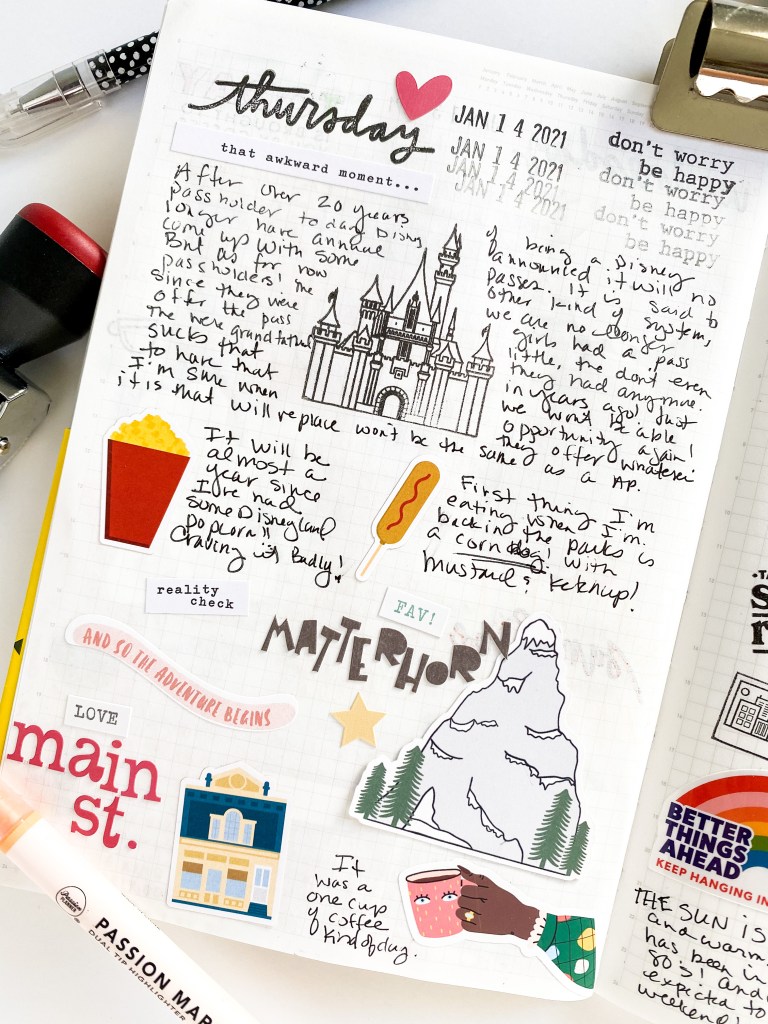 thursday
JAN 1 4 2021
JAN 1 4 2021
JAN 1 4 2021
JAN 1 4 2021
don't worry
be happy
don't worry
be happy
don't worry
be happy
that awkward moment...
After over 20 years of being a Disney
passholder today Disney announced it will no
longer have annual passes. It is said to
come up with some other kind of system,
But as for now we are no longer
passholders! The girls had a pass
since they were little, the dont even
offer the pass they had anymore.
The were grandfathered in years ago! Just
sucks that we won't be able
to have that opportunity again!
I'm sure when they offer whatever
it is that will replace won't be the same as a AP.
It will be
almost a
year since
I've had
some Disneyland
popcorn!!
Craving it Badly!
First thing I'm
eating when I'm
back in the parks is
a corn dog! with
mustard & Ketchup!
reality
check
FAV!
MATTERHORN
AND SO THE ADVENTURE BEGINS
LOVE
main
st.
It
was a
one cup
of coffee
kind of day.
PASSION PLANNER
PASSION MAR
DUAL TIP HIGHLIGHTER
BETTER
THINGS
AHEAD
KEEP HANGING IN
THE SUN IS
and warm.
has been in
80's! and
expected to
weekend!